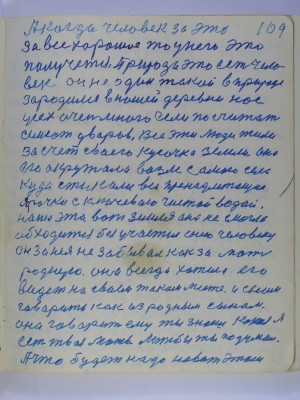 А когда человек за это 109
за все хорошое то у него это
получетси. Природа это сет чело
век он не один такой в природе
зародился в нашей деревни нос
усех очет много Если посчитат
семсот дваров, Все эти люди жили
за счет своего кусочка земли. она
его окружала возле самого села
куда стикали все пренадлежащие
ярочки с ключевою чистой водой,
наша эта вот зимля она не могла
обходится без участия сию человеку
он за нея не забывал как за мать
родную. она всегда хотела его
видет на своем таком месте. и с ним
гаварить как из родным сынам.
она гаварит ему ты знаеш какая я
сет твая мать Можбы ты подумал.
А что будет надо на вот этом